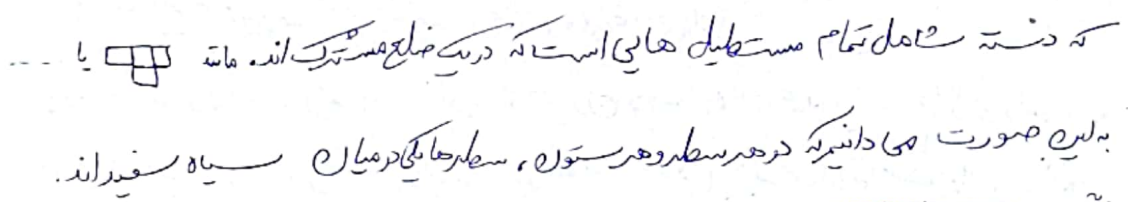 که دسته شامل تمام مستطیل هایی است که در یک ضلع مشترک اند. مانند یا ....
به این صورت می دانیم که در هر سطر و هر ستون، سطرها یکی درمیان سیاه سفید اند.